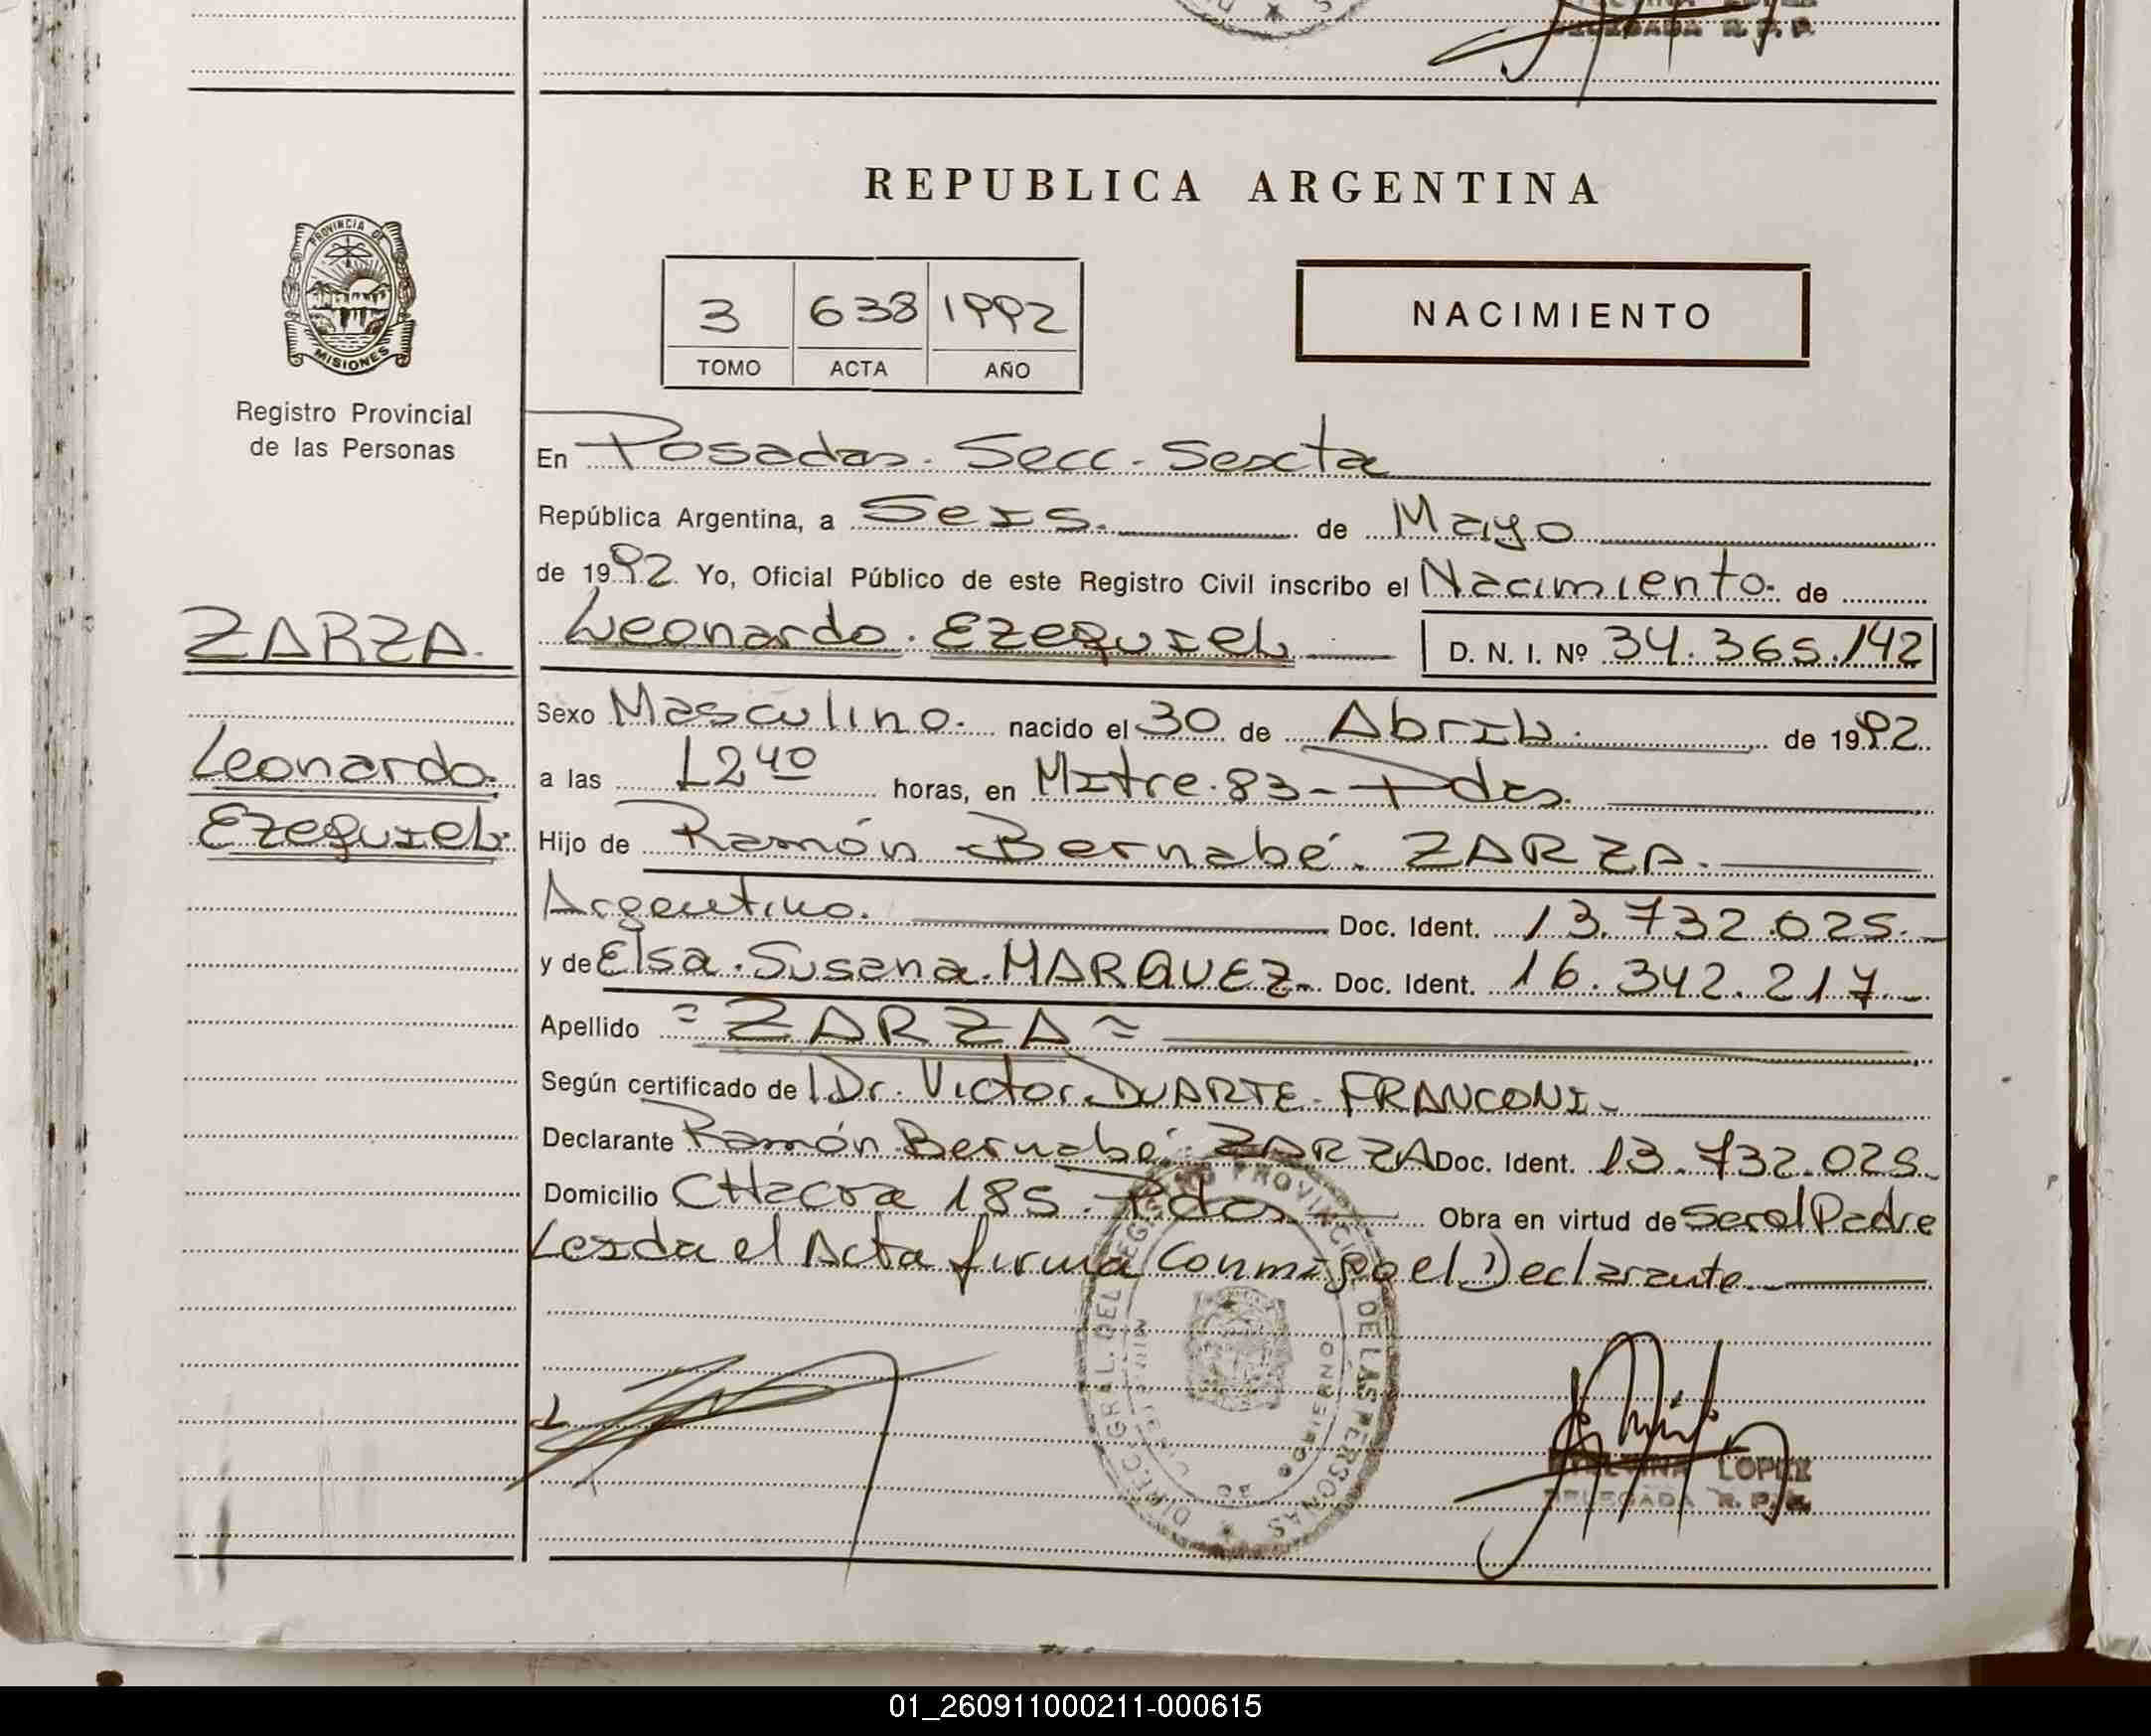 REPUBLICA ARGENTINA
PROVINCIA DE
MISIONES
Registro Provincial
de las Personas
3 638 1992
TOMO ACTA AÑO
NACIMIENTO
En Posadas. Secc. Sexta
República Argentina, a Seis. de Mayo
de 1992. Yo, Oficial Público de este Registro Civil inscribo el Nacimiento. de
ZARZA.
Leonardo. Ezequiel D. N. I. Nº 34.365.142
Sexo Masculino. nacido el 30 de Abril. de 1992.
Leonardo.
a las 12 40 horas, en Mitre. 83 - Pdas.
Ezequiel.
Hijo de Ramón Bernabé. ZARZA.
Argentino. Doc. Ident. 13.732.025.-
y de Elsa. Susana. MARQUEZ- Doc. Ident. 16.342.217.-
Apellido = ZARZA =
Según certificado de Dr. Victor DUARTE. FRANCONI-
Declarante Ramón Bernabé ZARZA Doc. Ident. 13.732.025-
Domicilio CHacra 185. Pdas Obra en virtud de Ser el Padre
Leida el Acta firma conmigo el Declarante
DIREC. GRAL. DEL REGISTRO PROVINCIAL DE LAS PERSONAS
GOBIERNO
LOPEZ
DELEGADA R. P. P.
01_260911000211-000615